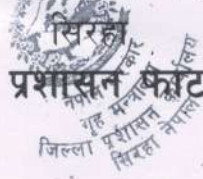 सिरहा
प्रशासन फाट
नेपाल सरकार
गृह मन्त्रालय
जिल्ला प्रशासन कार्यालय
सिरहा नेपाल